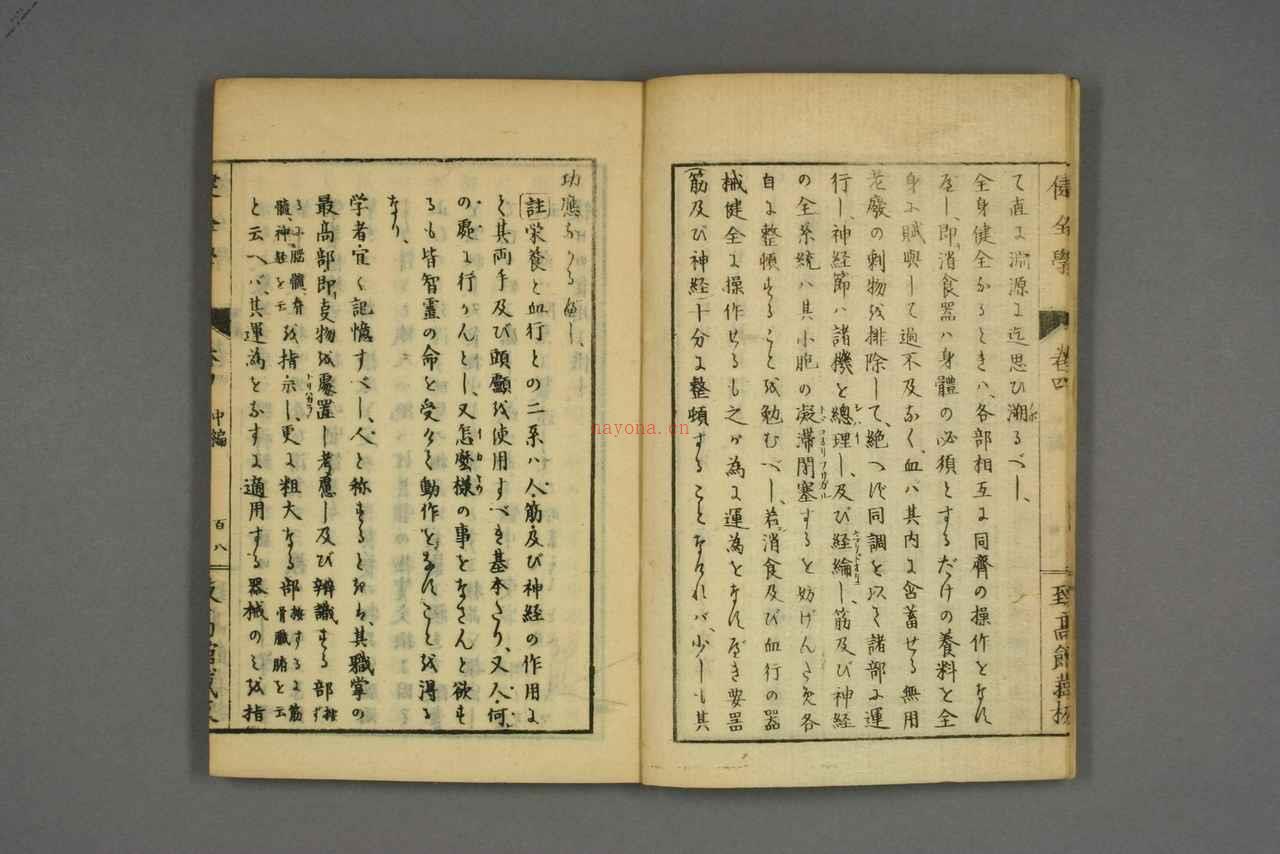 て直に淵源に迄思ひ溯るべし、
全身健全なるときハ、各部相互に同齊の操作をなす
べし、即消食器ハ身體の必須とするだけの養料を全
身に賦與して過不及なく、血ハ其内に含蓄せる無用
老廢の剰物を排除して、絶へず同調を以て諸部に運
行し、神経節ハ諸機を總理し、及び経綸し、筋及び神経
の全系統ハ其小胞の凝滞閉塞するを妨げんため各
自に整頓することを勉むべし、若消食及び血行の器
械健全に操作せるも之が為に運為をなすべき要器
筋及び神経十分に整頓することなけれバ、少しも其
健全學
巻四
至高館藏板
功應なかるべし、
註 栄養と血行との二系ハ人、筋及び神経の作用に
て其両手及び頭顱を使用すべき基本たり、又人、何
の處に行かんとし、又怎麼様の事をなさんと欲す
るも皆智靈の命を受けて動作をなすことを得る
なり、
学者宜く記憶すべし、人と称するときは、其職掌の
最高部即事物を處置し考慮し及び辨識する部
を指示し、更に粗大なる部
と云へバ、其運為をなすに適用する器械のミを指
中編
百八
nayona.cn